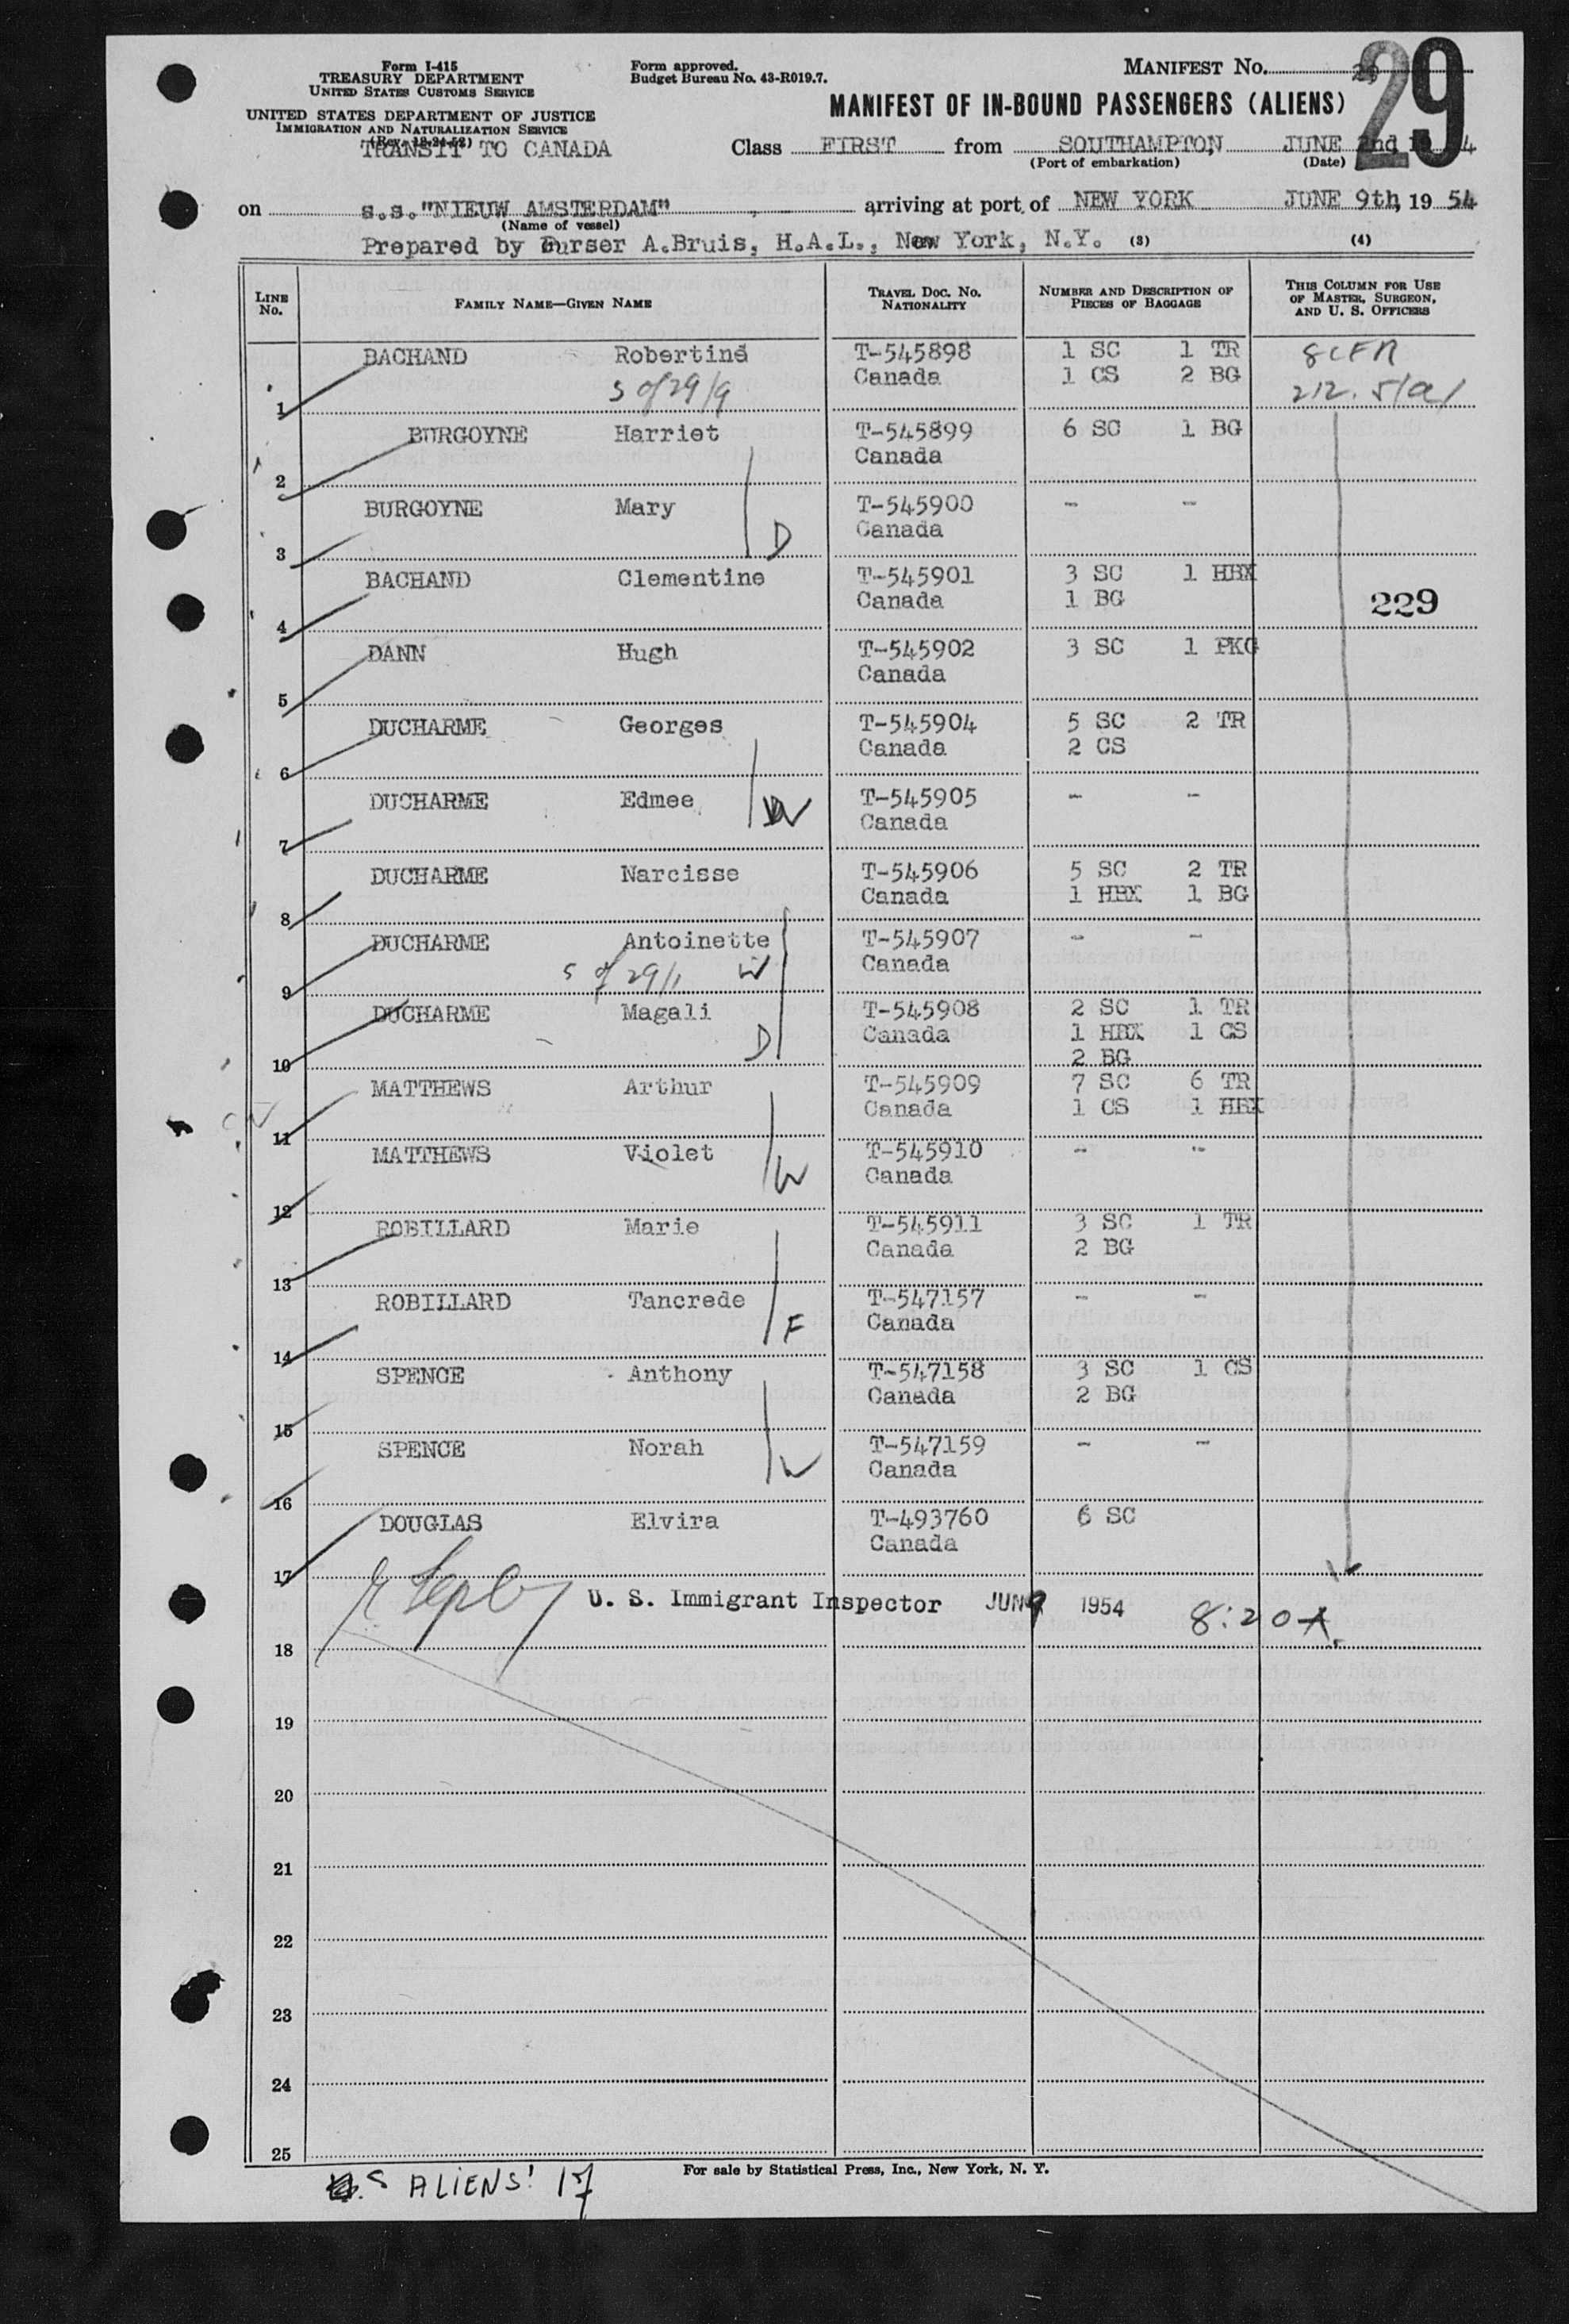 Form I-415
TREASURY DEPARTMENT
UNITED STATES CUSTOMS SERVICE
UNITED STATES DEPARTMENT OF JUSTICE
IMMIGRATION AND NATURALIZATION SERVICE
(Rev. 12-24-52)
TRANSIT TO CANADA
Form approved.
Budget Bureau No. 43-R019.7.
MANIFEST No. 29
MANIFEST OF IN-BOUND PASSENGERS (ALIENS)
Class FIRST from SOUTHAMPTON, JUNE 2nd
(Port of embarkation) (Date)
on s.s."NIEUW AMSTERDAM" arriving at port of NEW YORK JUNE 9th, 19 54
(Name of vessel)
Prepared by Purser A.Bruis, H.A.L., New York, N.Y. (3) (4)
LINE No. FAMILY NAME—GIVEN NAME TRAVEL DOC. No. NATIONALITY NUMBER AND DESCRIPTION OF PIECES OF BAGGAGE THIS COLUMN FOR USE OF MASTER, SURGEON, AND U. S. OFFICERS
BACHAND Robertine T-545898 1 SC 1 TR 8CFR
Canada 1 CS 2 BG 212.5(a)
1 S of 29/9
BURGOYNE Harriet T-545899 6 SC 1 BG
Canada
2
BURGOYNE Mary T-545900 - -
D Canada
3
BACHAND Clementine T-545901 3 SC 1 HBX
Canada 1 BG 229
4
DANN Hugh T-545902 3 SC 1 PKG
Canada
5
DUCHARME Georges T-545904 5 SC 2 TR
Canada 2 CS
6
DUCHARME Edmee T-545905 - -
W Canada
7
DUCHARME Narcisse T-545906 5 SC 2 TR
Canada 1 HBX 1 BG
8
DUCHARME Antoinette T-545907 - -
S of 29/1 W Canada
9
DUCHARME Magali T-545908 2 SC 1 TR
D Canada 1 HBX 1 CS
10 2 BG
MATTHEWS Arthur T-545909 7 SC 6 TR
Canada 1 CS 1 HBX
11
MATTHEWS Violet T-545910 - -
W Canada
12
ROBILLARD Marie T-545911 3 SC 1 TR
Canada 2 BG
13
ROBILLARD Tancrede T-547157 - -
F Canada
14
SPENCE Anthony T-547158 3 SC 1 CS
Canada 2 BG
15
SPENCE Norah T-547159 - -
Canada
16
DOUGLAS Elvira T-493760 6 SC
Canada
17
U. S. Immigrant Inspector JUN 9 1954 8:20A.
18
19
20
21
22
23
24
25
For sale by Statistical Press, Inc., New York, N. Y.
ALIENS! 17